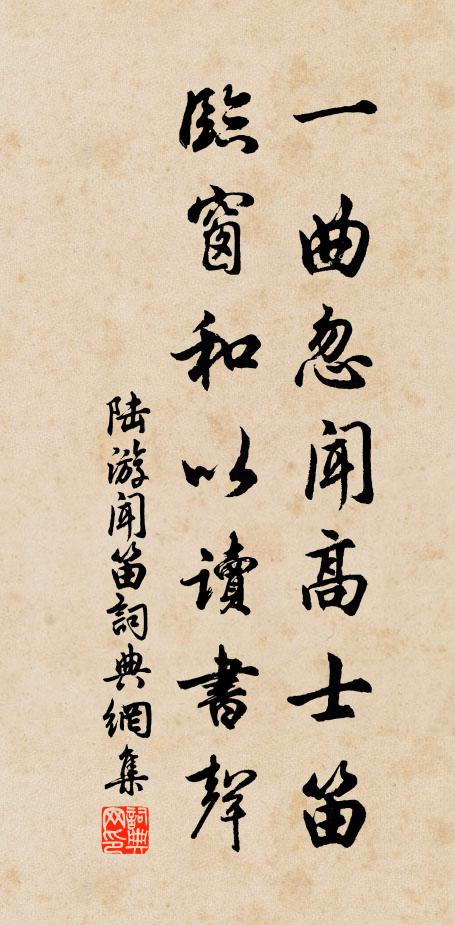 一曲忽闻高士笛
臨窗和以讀書聲
陆游闻笛詞典網集
詞典网印